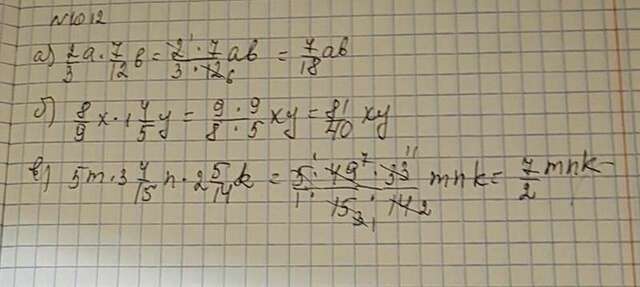 №1012
а) 2/3 a · 7/12 b = 2¹ · 7 / 3 · 12₆ ab = 7/18 ab
б) 8/9 x · 1 4/5 y = 9 · 9 / 8 · 5 xy = 81/40 xy
в) 5m · 3 4/15 n · 2 5/14 k = 5¹ · 49⁷ · 33¹¹ / 1 · 15₃₁ · 14₂ mnk = 7/2 mnk